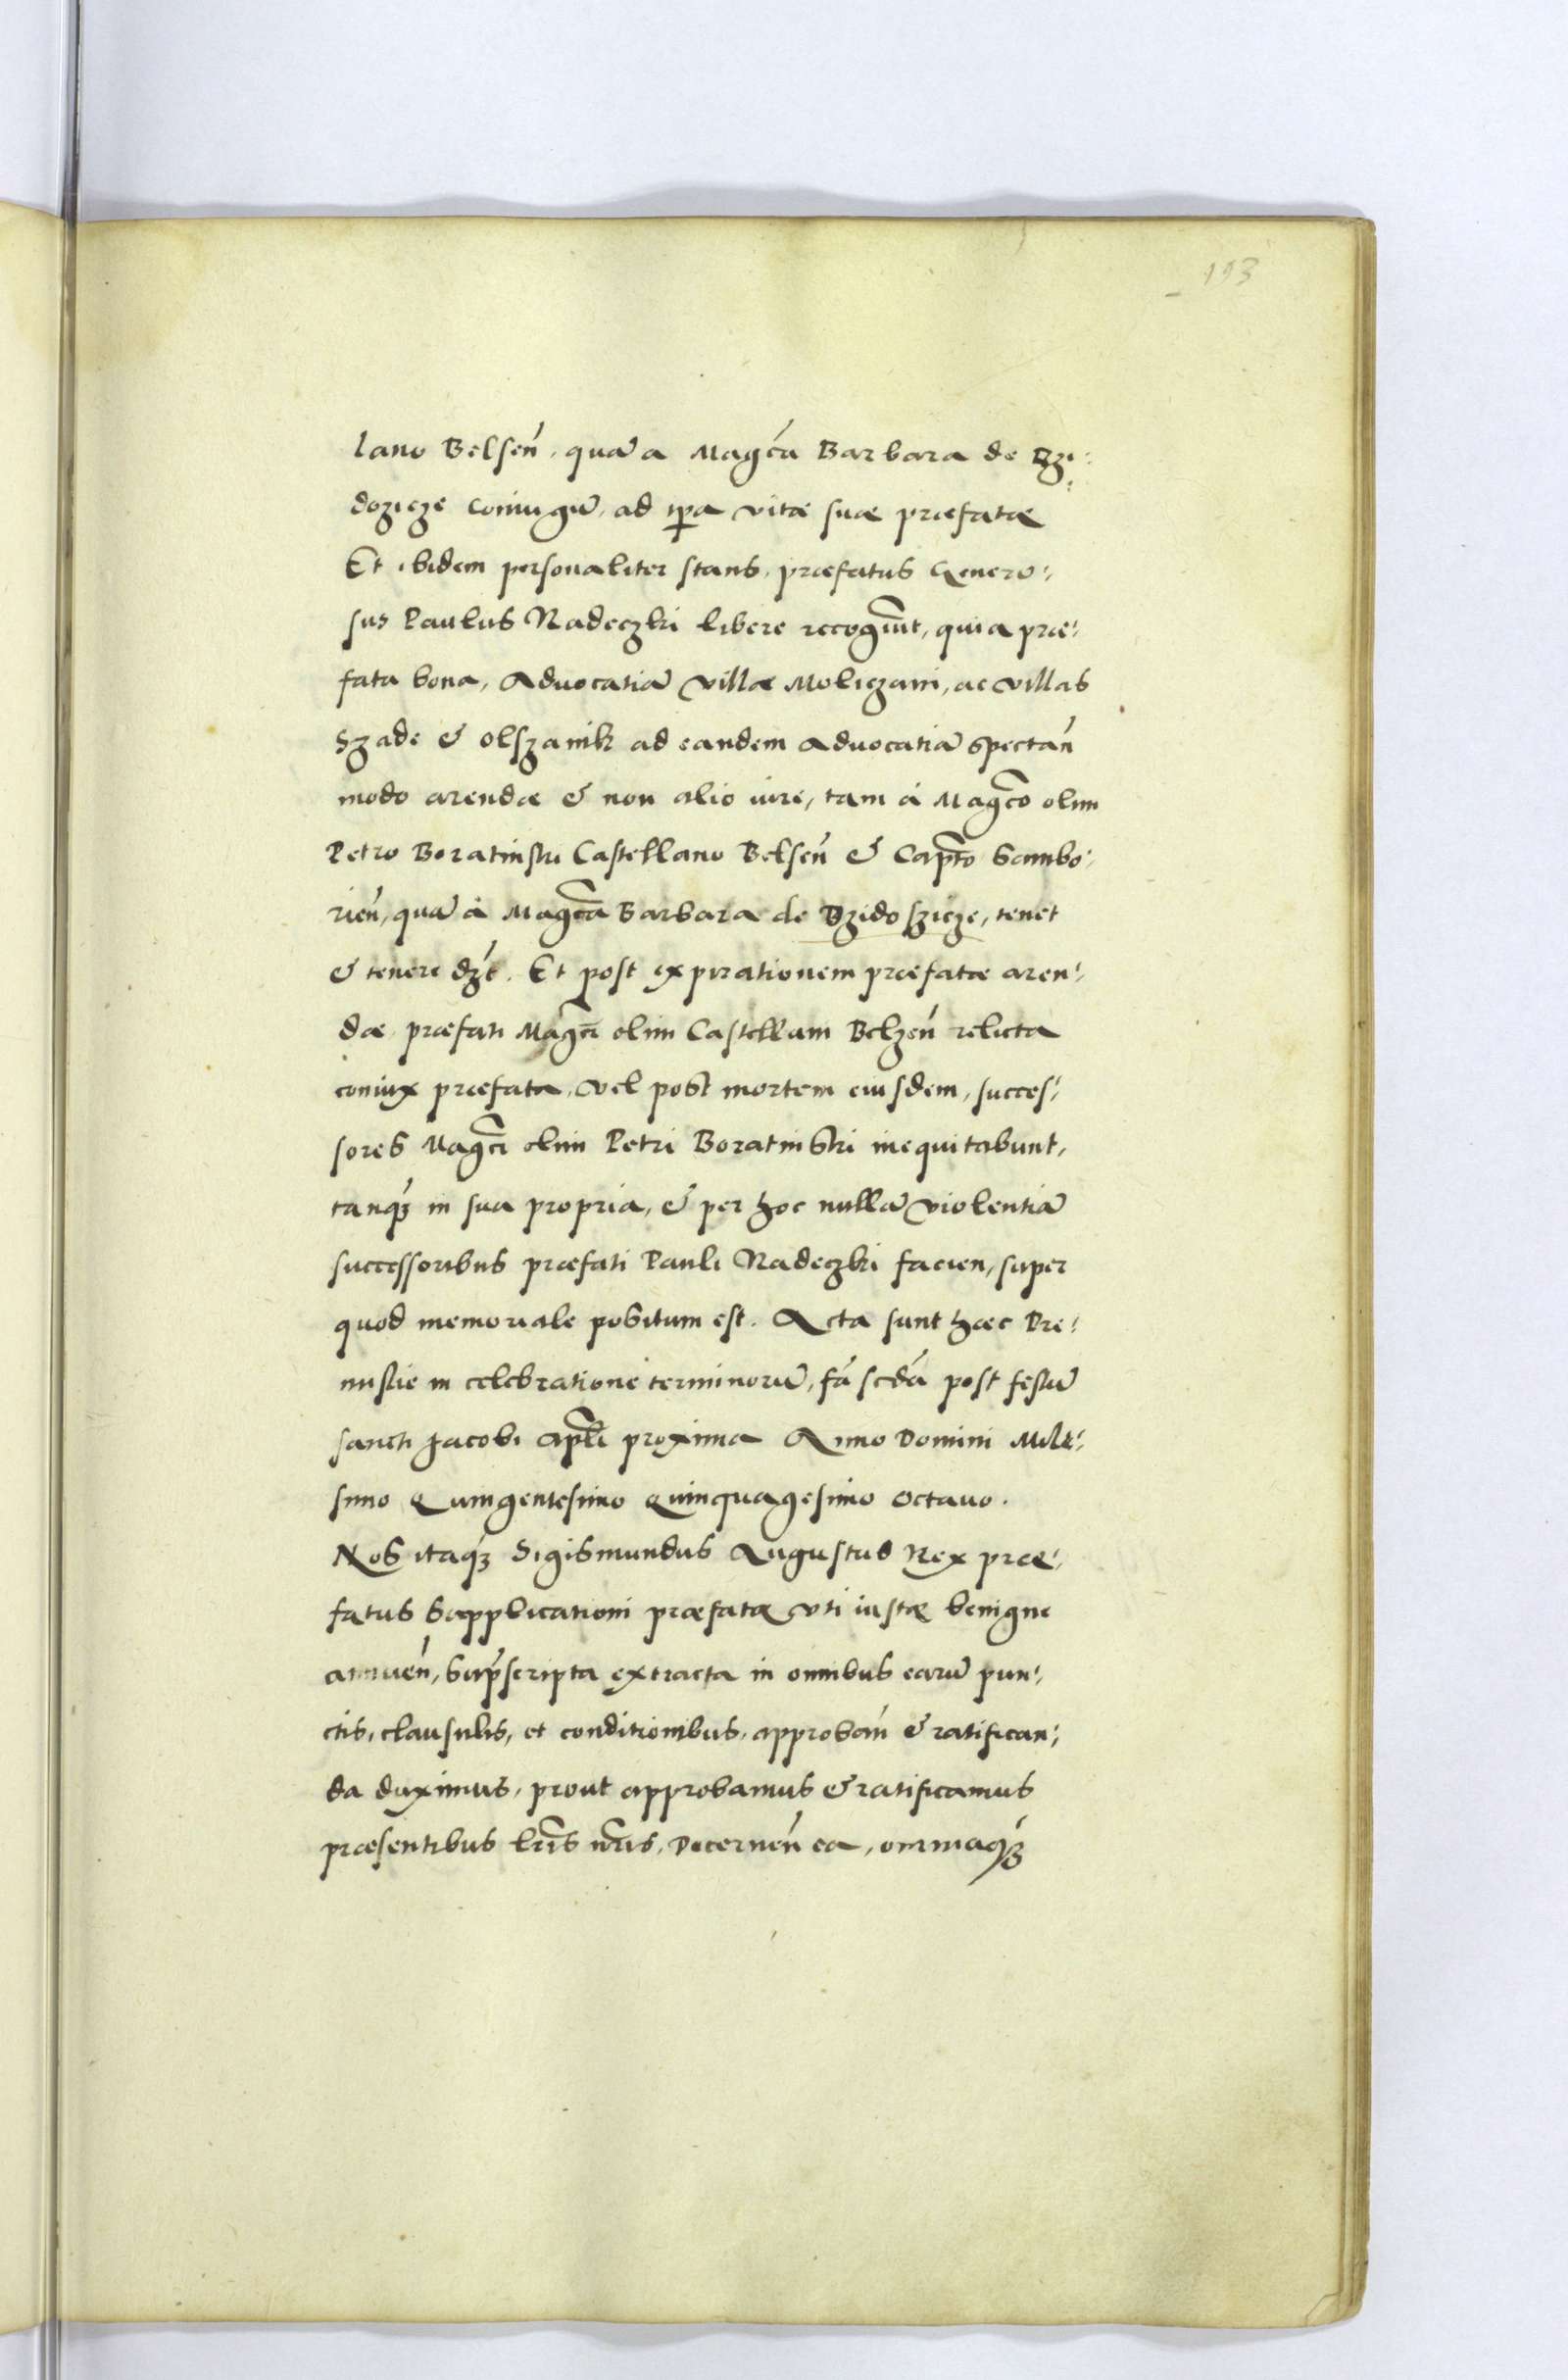 193
lano Belsen̄, quā a Mag̃ca Barbara de Dzi:
dozicze coniugū, ad tp̄a vitæ suæ præfatæ
Et ibidem personaliter stans, præfatus Genero:
sus Paulus Radeczki libere recogͫuit, quia præ:
fata bona, Advocatiā villæ Moliczani, ac villas
Szade & Olszanik ad eandem advocatiā spectan̄
modo arendæ & non alio iure, tam á Mag̃co olim
Petro Boratinski Castellano Belsen̄ & Cap̃to Sambo:
rien̄, quā á Mag̃ca Barbara de Dzidoszicze, tenet
& tenere dz̃t. Et post expirationem præfatæ aren:
dæ præfati Mag̃ci olim Castellani Belzen̄ relicta
coniux præfata, vel post mortem eiusdem, succes:
sores Mag̃ci olim Petri Boratinski inequitabunt,
tanq̃ʒ in sua propria, & per hoc nullā violentiā
successoribus præfati Pauli Radeczki facien, super
quod memoriale positum est. Acta sunt hæc Pre:
misliæ in celebratione terminorū, fā scdā post festū
sancti Jacobi ap̃li proxima Anno Domini Mille:
simo Quingentesimo Quinquagesimo Octavo.
Nos itaq̃ʒ Sigismundus Augustus Rex præ:
fatus Supplicationi præfatæ uti iustæ benigne
annuen̄, sup̃scripta extracta in omnibus earū pun:
ctis, clausulis, et conditionibus, approban̄ & ratifican:
da duximus, prout approbamus & ratificamus
præsentibus lr̃is nr̃is, Decernen̄ ea, omniaq̃ʒ